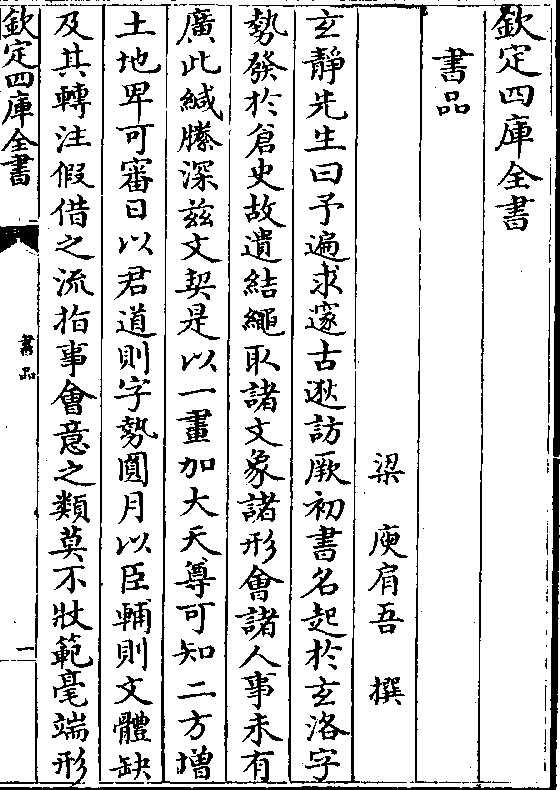 欽定四庫全書
書品
梁 庾肩吾 撰
玄靜先生曰予遍求邃古逖訪厥初書名起於玄洛字
勢發於倉史故遺結繩取諸文象諸形會諸人事未有
廣此緘縢深茲文契是以一畫加大天尊可知二方增
土地卑可審日以君道則字勢圓月以臣輔則文體缺
及其轉注假借之流指事會意之類莫不狀範毫端形
欽定四庫全書
書品
一